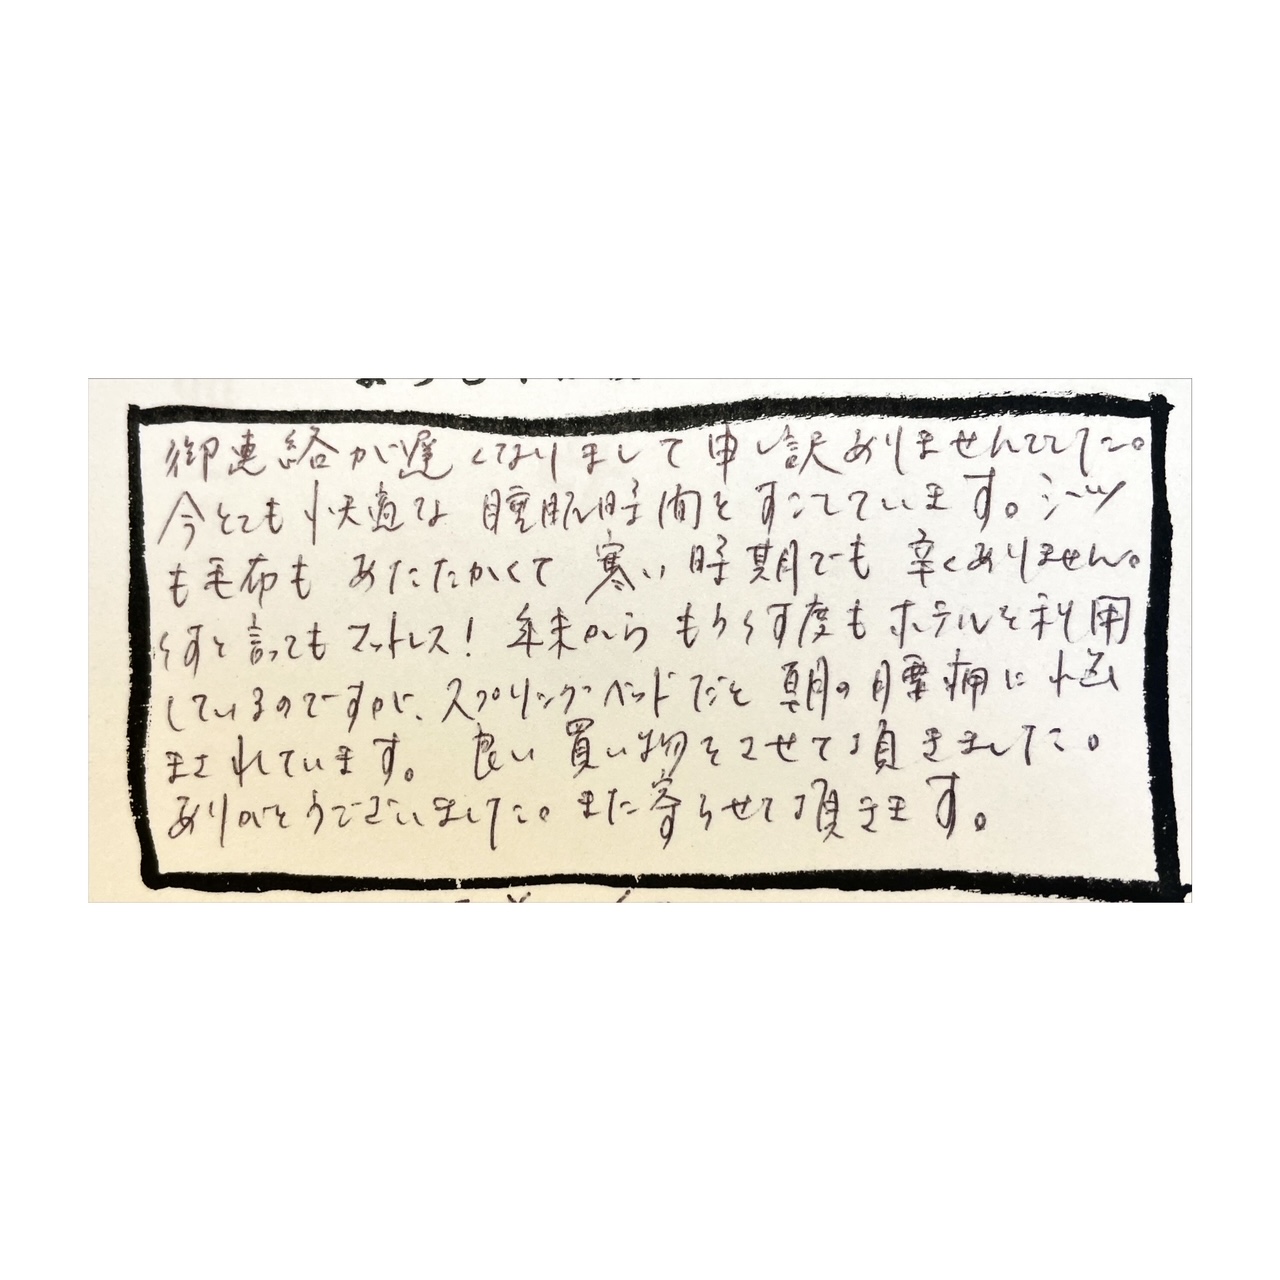 御連絡が遅くなりまして申し訳ありませんでした。
今とても快適な睡眠時間をすごしています。シーツ
も毛布もあたたかくて寒い時期でも辛くありません。
何と言ってもマットレス！年末からもう何度もホテルを利用
しているのですが、スプリングベッドだと朝の腰痛に悩
まされています。良い買い物をさせて頂きました。
ありがとうございました。また寄らせて頂きます。